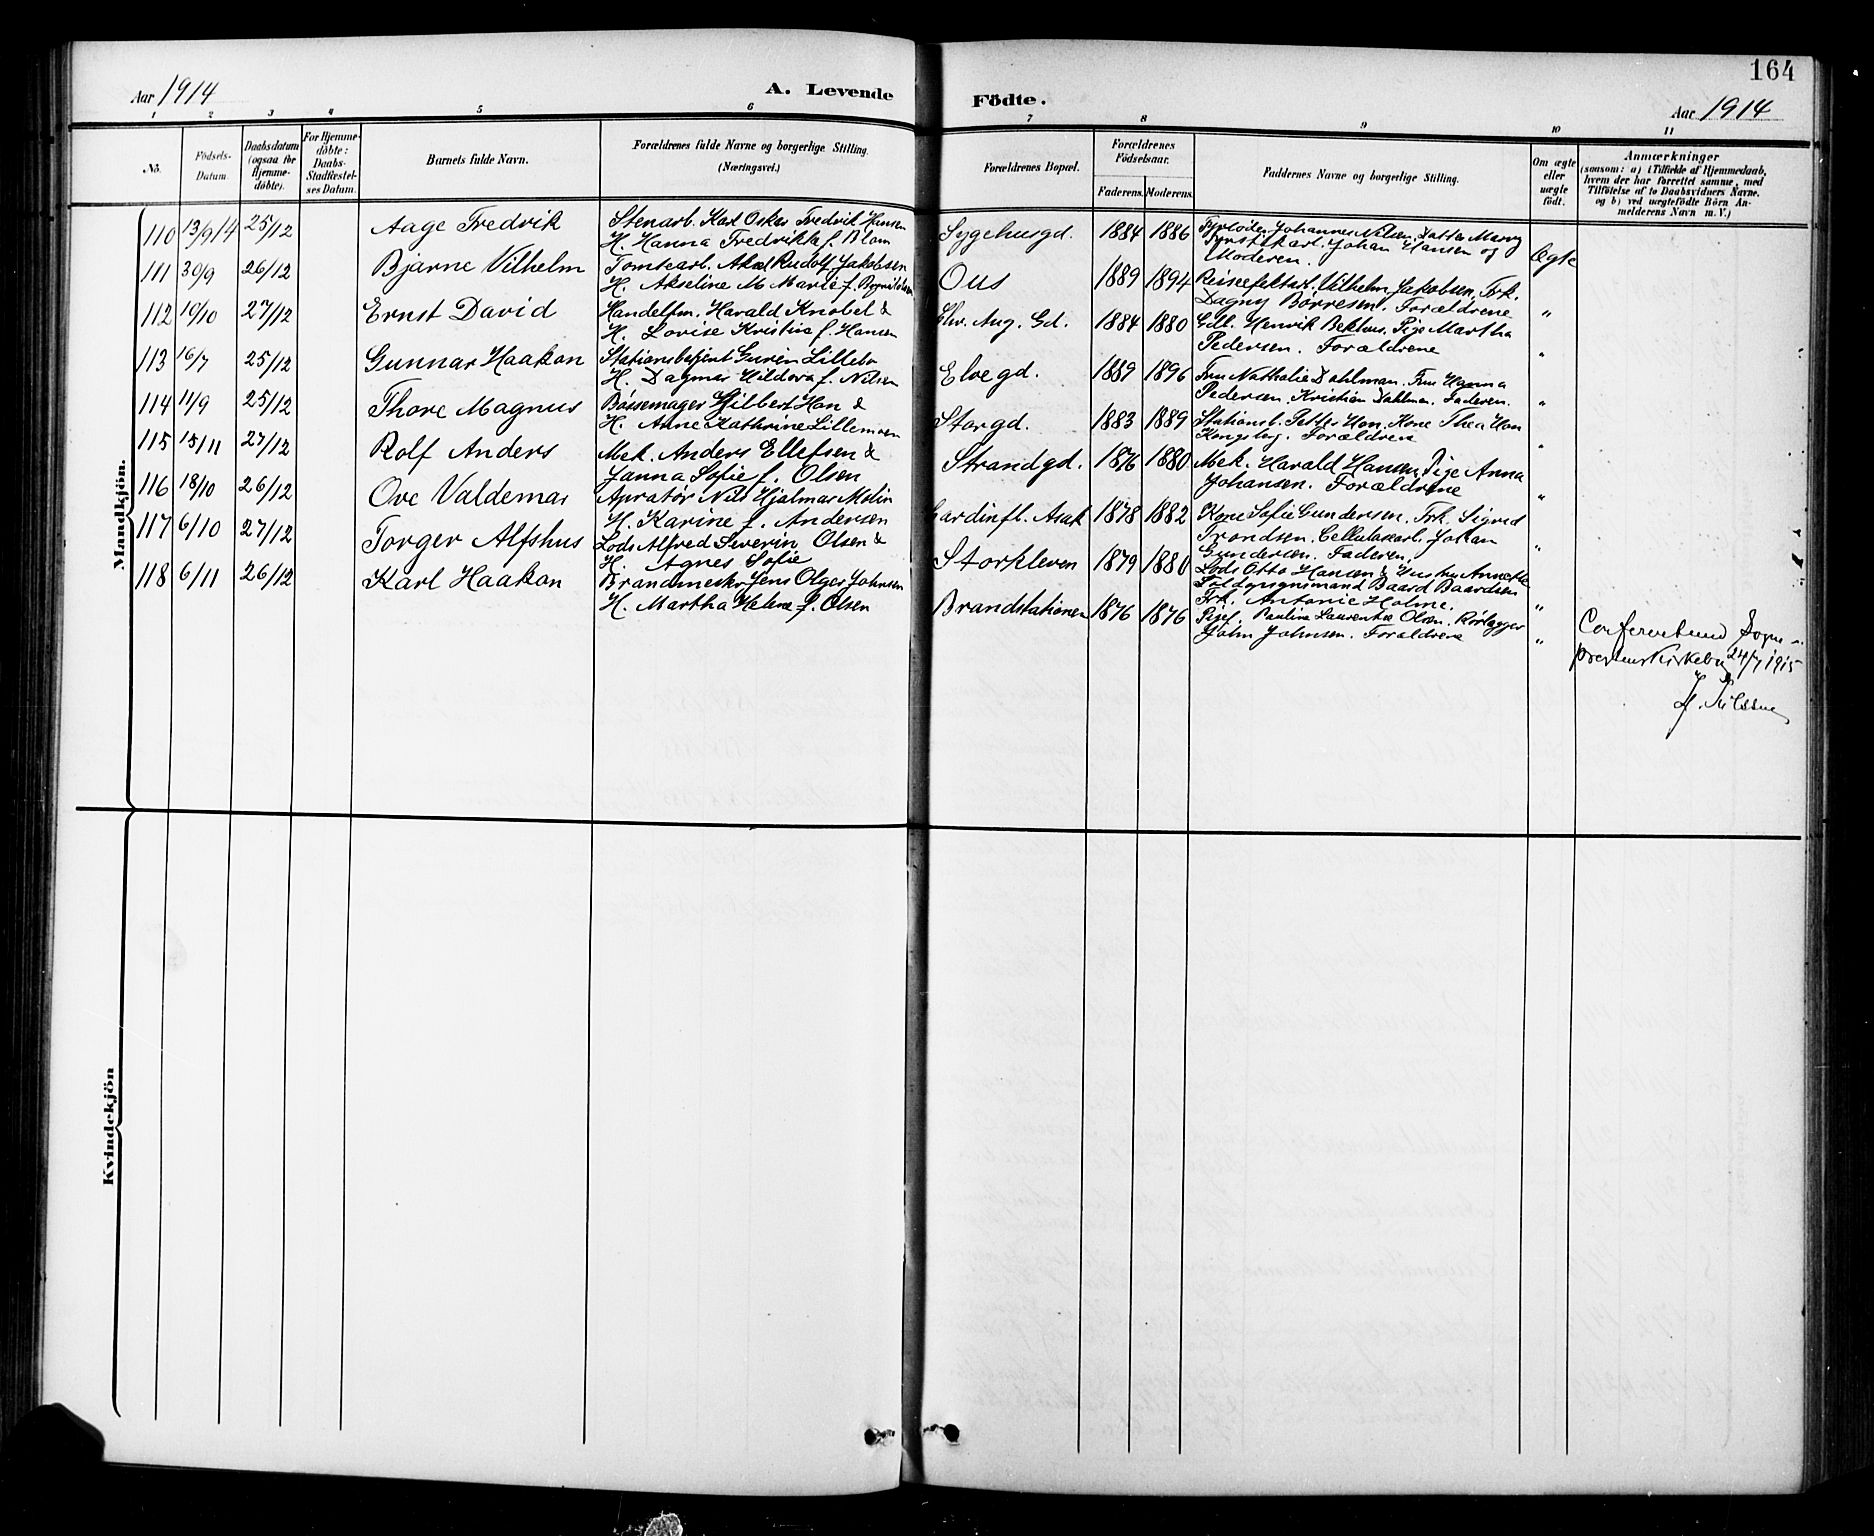 164
Aar 1914
A. Levende Födte.
Aar 1914
1 2 3 4 5 6 7 8 9 10 11
No.
Födsels-Datum.
Daabsdatum (ogsaa for Hjemme-döbte).
For Hjemme-döbte: Daabs-Stadfæstel-ses Datum.
Barnets fulde Navn.
Forældrenes fulde Navne og borgerlige Stilling.
(Næringsvei.)
Forældrenes Bopæl.
Forældrenes Födselsaar.
Faderens. Moderens.
Faddernes Navne og borgerlige Stilling.
Om ægte eller uægte födt.
Anmærkninger
(saasom: a) i Tilfælde af Hjemmedaab,
hvem der har forrettet samme, med
Tilföielse af to Daabsvidners Navne.
og b) ved uægtefödte Börn An-
melderens Navn m. V.)
Mandkjön.
110 13/9 14 25/12 Aage Fredrik Stenarb. Karl Oskar Fredrik Hansen
H. Hanna Fredrikke f. Blom
Sygehusgd. 1884 1886 Fyrbøder Johannes Nilsen, Datter Mary
Johan Hansen og
Moderen. Ægte
111 30/9 26/12 Bjarne Vilhelm Tomtearb. Aksel Rudolf Jakobsen
H. Akseline M. Marie f.
Ous 1889 1894 Vilhelm Jakobsen, Frk.
Dagny Børresen. Forældrene "
112 10/10 27/12 Ernst David Handelfm. Harald Knobel &
H. Lovise Kristina f. Hansen
Chr. Aug. Gd. 1884 1880 Gdl. Henrik Bekhus, Pige Martha
Pedersen. Forældrene "
113 16/7 25/12 Gunnar Haakon Stationsbetjent Lillebo
H. Dagmar Hildora f. Nilsen
Elvegd. 1889 1896 Fru Nathalie Dahlman. Fru Hanna
Pedersen, Kristian Dahlman. Faderen. "
114 11/9 25/12 Thore Magnus Bøssemager Gilbert Hon &
H. Anne Kathrine Lillemoen
Storgd. 1883 1889 Stationsb. Petter Hon, Kone Thea Hon
Kongsberg. Forældrene "
115 15/11 27/12 Rolf Anders Mek. Anders Ellefsen &
Janna Sofie f. Olsen
Strandgd. 1876 1880 Mek. Harald Hansen, Pige Anna
Johansen. Forældrene "
116 18/10 26/12 Ove Valdemar Apratør Nils Hjalmar Molin
H. Karine f. Andersen
Gardinfl. Asak 1878 1882 Kone Sofie Gundersen. Frk. Sigrid
Trondsen. Cellulosearb. Johan
Gundersen. Faderen. "
117 6/10 27/12 Torger Alfshus Lods Alfred Severin Olsen &
H. Agnes Sofie
Storkleven 1879 1880 Lods Otto Hansen & Hustru
Baard Baardsen
Frk. Antonie Holme. "
118 6/11 26/12 Karl Haakon Brandmester Jens Olger Johnsen
H. Martha Helene f. Olsen
Brandstationen 1876 1876 Pigef. Pauline Laurentse Olsen, Rørlægger
John Johnsen. Forældrene "
Conferert med Sogne-
prestens Kirkebog 24/7 1915
H. Nilssen
Kvindekjön